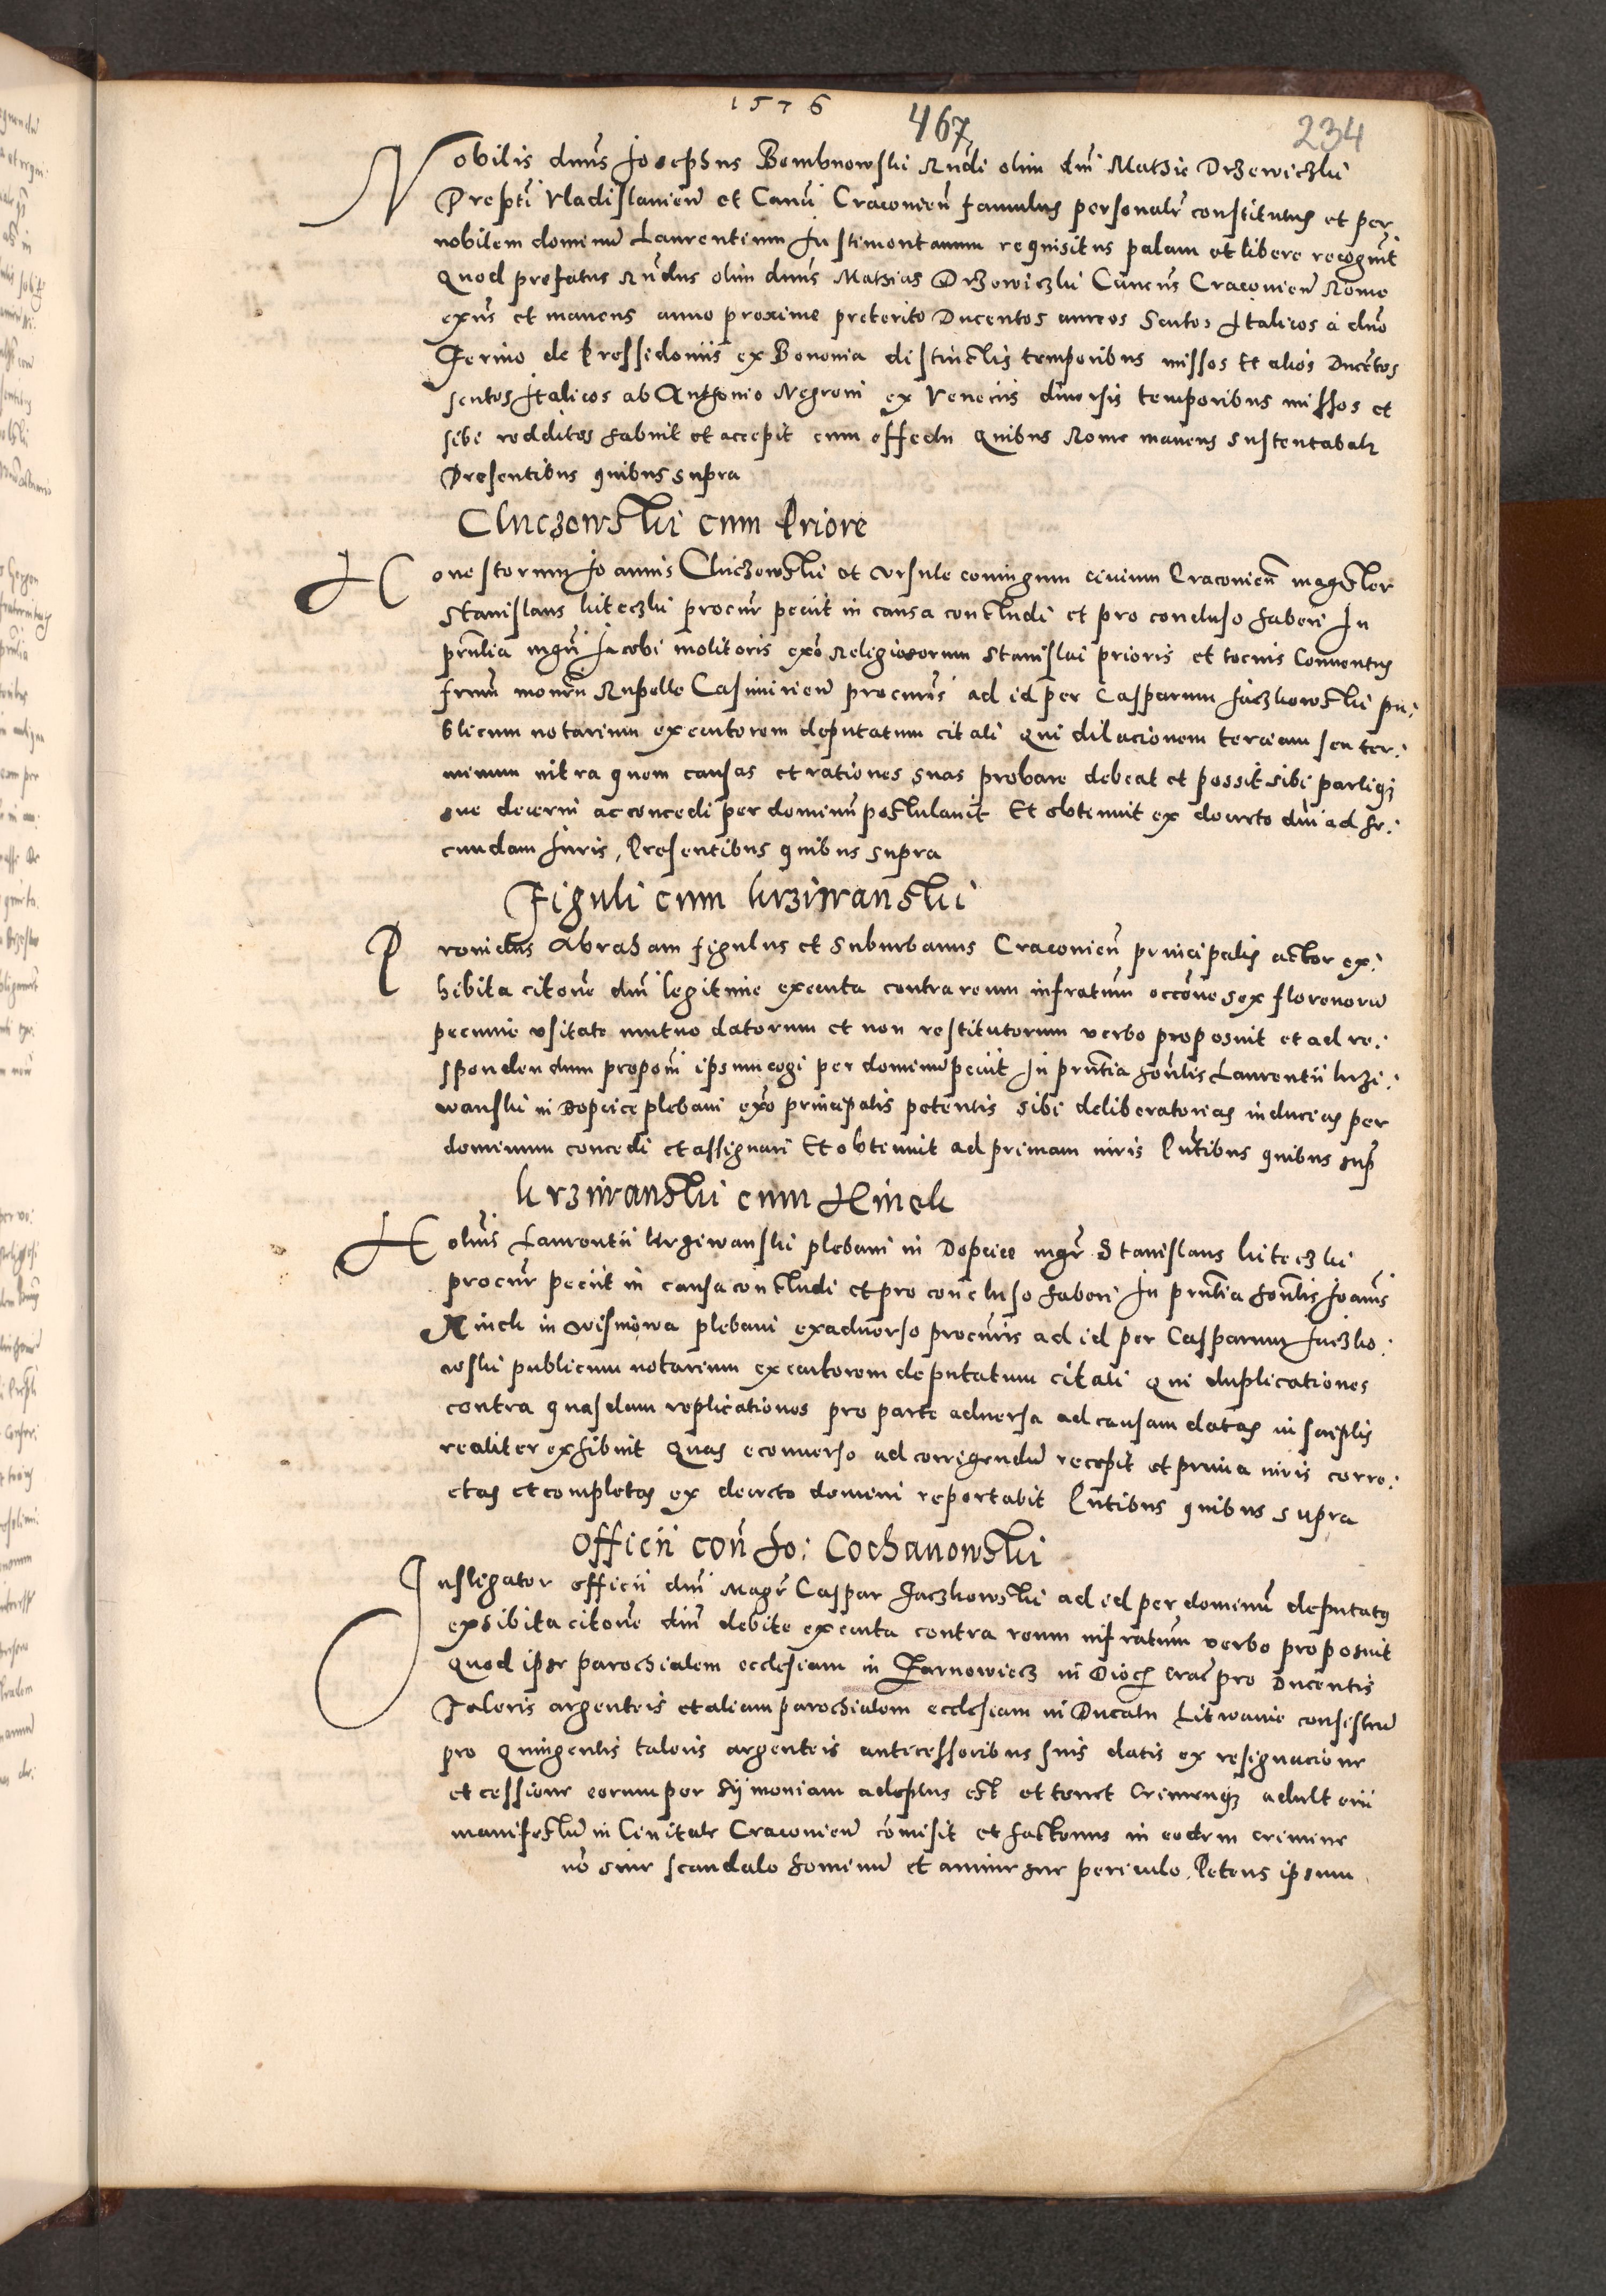 1576
467
234
Nobilis dnus Josephus Bembnowski Rndi olim dni Mathie Drzewiczki
Prepti Vladislavien et Canci Cracovien famulus personalr constitutus et per
nobilem dominu Laurentium Justimontanum requisitus palam et libere recognit
Quod prefatus Rndus olim dnus Mathias Drzewiczki Cancus Cracovien Rome
exns et manens anno proxime preterito Ducentos aureos Scutos Italicos a dno
de Pressidoniis ex Bononia distinctis temporibus missos Et alios Ducetos
scutos Italicos ab Anthonio Negroni ex Veneciis diversis temporibus missos et
sibi redditos habuit et accepit cum effectu Quibus Rome manens sustentabatr
Presentibus quibus supra
Cluczowski cum Priore
Honestorum Joannis Cluczowski et Ursule coniugum civium Cracovien magister
Stanislaus kiteczki procur peciit in causa concludi et pro concluso haberi In
prntia mgri Jacobi molitoris exo Religiosorum Stanislai prioris et tocius Conventus
frum monrii Rupelle Casimirien procuris ad id per Casparum Jaczkowski pu:
blicum notarium executorem deputatum citati Qui dilacionem terciam seu ter:
minum infra quem causas et rationes suas probare debeat et possit sibi partiq;
sue decerni ac concedi per dominu postulavit Et obtenuit ex decreto dni ad se:
cundam Juris, Presentibus quibus supra
Figuli cum krziwanski
Providus Abraham figulus et suburbanus Cracovien principalis actor ex:
hibita citone dni legitime executa contra reum infratum occone sex florenoru
pecunie usitate mutuo datorum et non restitutorum verbo proposuit et ad re:
spondendum proponi ipsum cogi per dominu peciit In prntia honlis Laurentii krzi:
wanski in Dopcice plebani exo principalis petentis sibi deliberatorias inducias per
dominum concedi et assignari Et obtenuit ad primam iuris Pntibus quibus sup
krziwanski cum Hinek
Holuis Laurentii krziwanski plebani in Dopcice mgr Stanislaus kiteczki
procur peciit in causa concludi et pro concluso haberi In prntia honlis Joanis
Hinek in Wismowa plebani ex adverso procuris ad id per Casparum Jaczko:
wski publicum notarium executorem deputatum citati Qui duplicationes
contra quasdam replicationes pro parte adversa ad causam datas in scriptis
realiter exhibuit Quas econverso ad corrigendu recepit et prima iuris corre:
ctas et completas ex decreto domini reportabit Pntibus quibus supra
Officii con Jo: Cochanowski
Instigator officii dni Magr Caspar Jaczkowski ad id per dominu deputatus
exhibita citone dni debite executa contra reum infratum verbo proposuit
Quod ipse parochialem ecclesiam in Zarnowiecz in Dioc crac pro Ducentis
Taleris argenteis et aliam parochialem ecclesiam in Ducatu Litwanie consistem
pro Quingentis taleris argenteis antecessoribus suis datis ex resignacione
et cessione eorum per sijmoniam adeptus est et tenet Crimenq; adulterii
manifestu in Civitate Cracovien comisit et hactenus in eodem crimine
no sine scandalo hominu et anime sue periculo. Petens ipsum